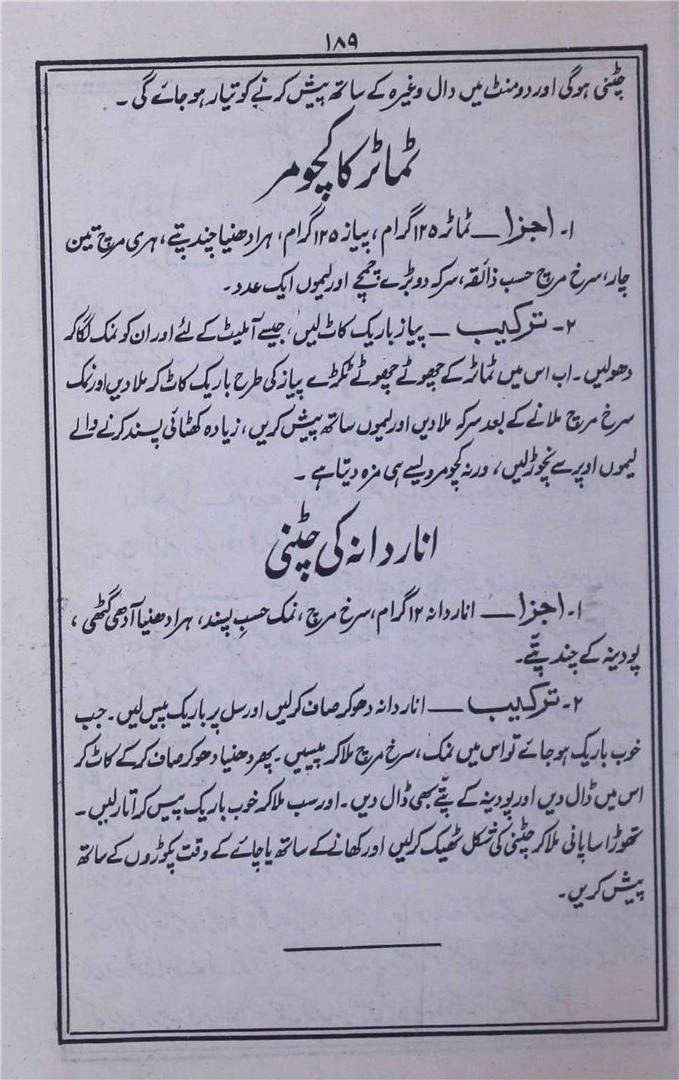 ۱۸۹
چٹنی ہوگی اور دو منٹ میں دال وغیرہ کے ساتھ پیش کرنے کو تیار ہو جائے گی ۔
ٹماٹر کا کچومر
۱۔ اجزا — ٹماٹر ۱۲۵ گرام، پیاز ۱۲۵ گرام، ہرا دھنیا چند پتے، ہری مرچ تین
چار، سرخ مرچ حسب ذائقہ، سرکہ دو بڑے چمچے اور لیموں ایک عدد۔
۲۔ ترکیب — پیاز باریک کاٹ لیں، جیسے آملیٹ کے لئے اور ان کو نمک لگا کر
دھولیں ۔ اب اس میں ٹماٹر کے چھوٹے چھوٹے ٹکڑے پیاز کی طرح باریک کاٹ کر ملا دیں اور نمک
سرخ مرچ ملانے کے بعد سرکہ ملا دیں اور لیموں ساتھ پیش کریں، زیادہ کھٹائی پسند کرنے والے
لیموں اوپر سے نچوڑ لیں، ورنہ کچومر ویسے ہی مزہ دیتا ہے ۔
انار دانہ کی چٹنی
۱۔ اجزا — انار دانہ ۱۲ گرام، سرخ مرچ، نمک حسبِ پسند، ہرا دھنیا آدھی گٹھی،
پودینہ کے چند پتّے۔
۲۔ ترکیب — انار دانہ دھو کر صاف کرلیں اور سل پر باریک پیس لیں۔ جب
خوب باریک ہو جائے تو اس میں نمک، سرخ مرچ ملا کر پیسیں۔ پھر دھنیا دھو کر صاف کرکے کاٹ کر
اس میں ڈال دیں اور پودینہ کے پتّے بھی ڈال دیں۔ اور سب ملا کر خوب باریک پیس کر اُتار لیں۔
تھوڑا سا پانی ملا کر چٹنی کی شکل ٹھیک کرلیں اور کھانے کے ساتھ یا چائے کے وقت پکوڑوں کے ساتھ
پیش کریں۔